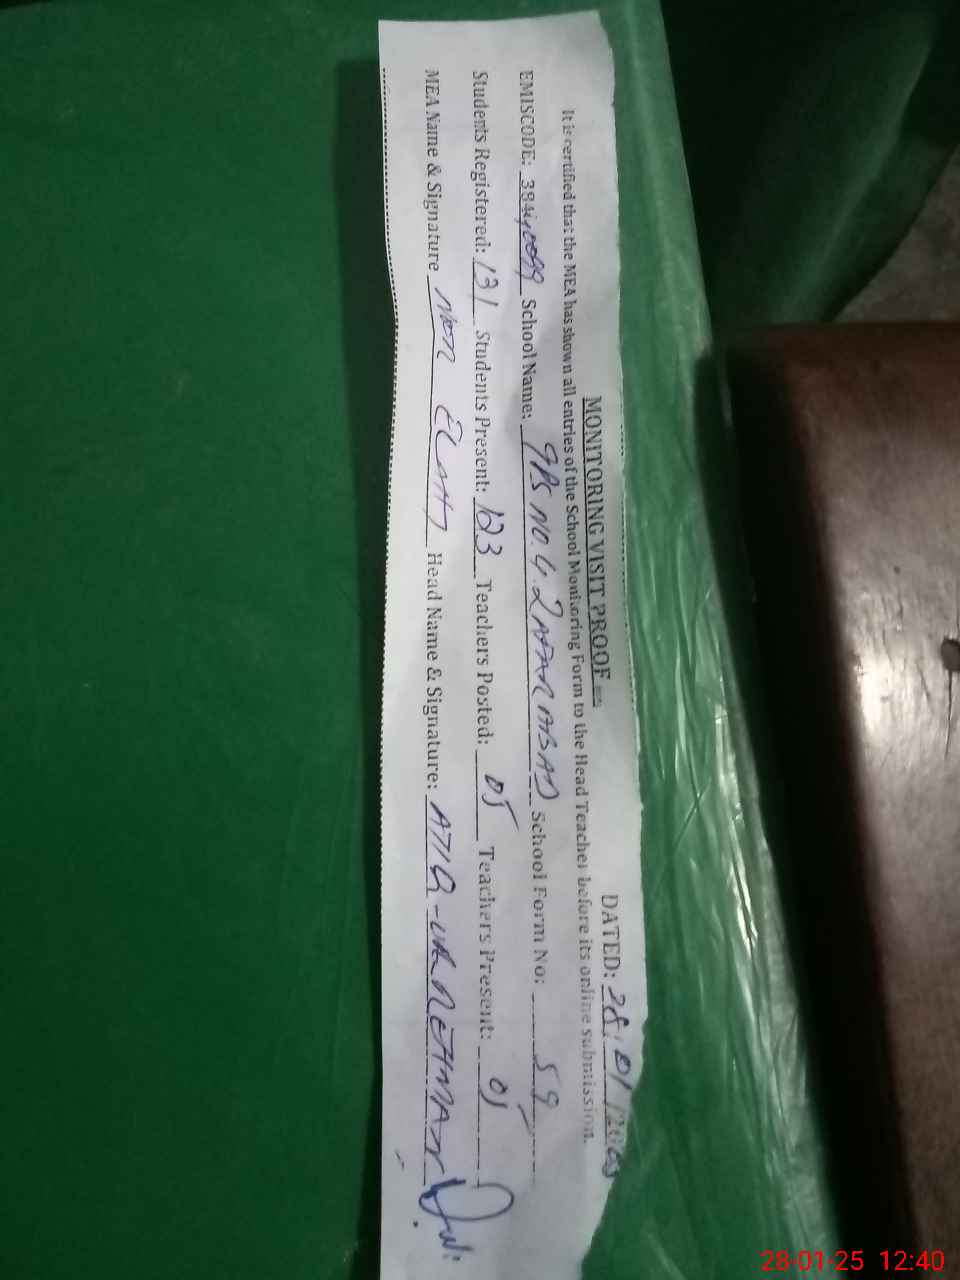 MONITORING VISIT PROOF
DATED: 28/01/2025
It is certified that the MEA has shown all entries of the School Monitoring Form to the Head Teacher before its online submission.
EMISCODE: School Name: GPS NO.4 ZAFAR ABAD School Form No: 59
Students Registered: 131 Students Present: 123 Teachers Posted: 05 Teachers Present: 05
MEA Name & Signature NOOR ELAHI Head Name & Signature: ATIQ-UR REHMAN
28-01-25 12:40